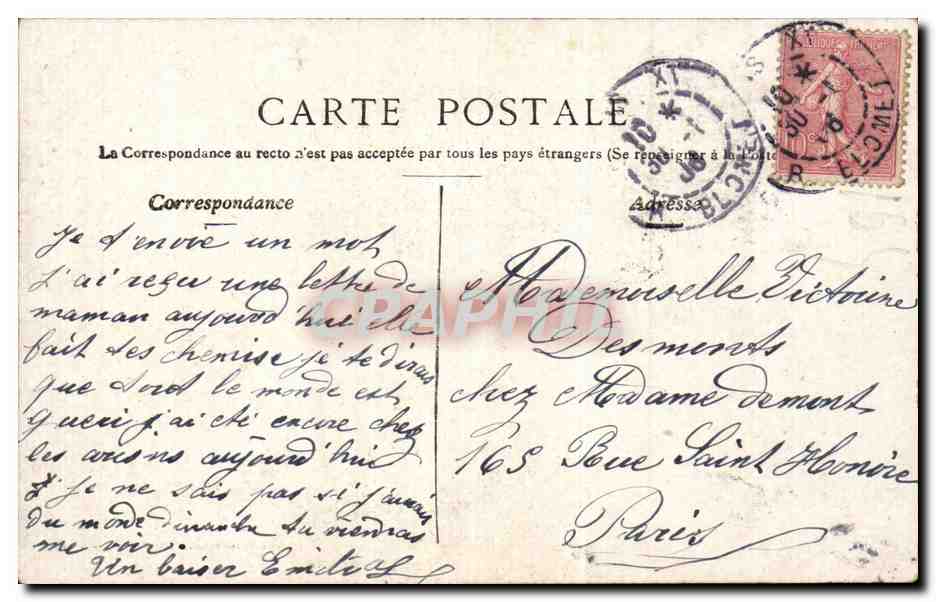 CARTE POSTALE
La Correspondance au recto n'est pas acceptée par tous les pays étrangers (Se renseigner à la Poste
Correspondance
Adresse
Je t'envoé un mot
j'ai reçu une lettre de
maman aujourd'hui elle
fait tes chemise je te dirais
que tout le monde est
gueri j'ai été encore chez
les voisins aujourd'hui
je ne sais pas si j'aurais
du monde dimanche tu viendras
me voir.
Un baiser
Mademoiselle Victorine
Desmonts
chez Madame demont
165 Rue Saint Honoré
Paris
XI
10
30
06
BLOMET
XI
10
30
06
R BLOMET
CRAPHIL